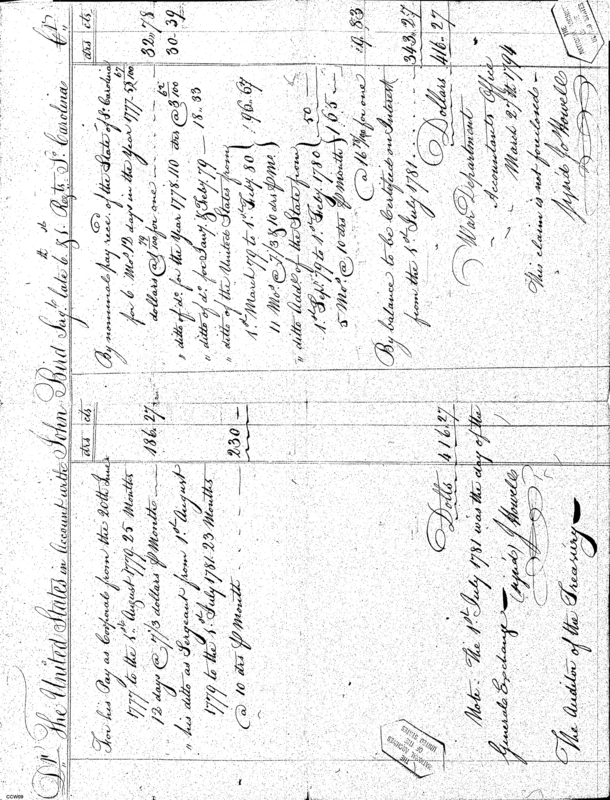 Dr. The United States in Account with John Bird Sergt. late 6th & 1st Regts. So. Carolina Cr.
drs cts
For his Pay as Corporal from the 20th June
1777 to the 1st. August 1779 25 Months
12 days @ 7 1/3 dollars pr Month
186.27
" his ditto as Sergeant from 1st. August
1779 to the 1st. July 1781. 23 Months
@ 10 drs pr Month
230 -
Dolls 416.27
Note. The 1st. July 1781 was the day of the
Generals Exchange
signed J Howell
The Auditor of the Treasury
drs cts
By nominal pay recd. of the State of So. Carolina
for 6 Mos. 12 days in the Year 1777
dollars @ for one
32.78
" ditto of do. for the Year 1778. 110 drs @
30.39
" ditto of do. for Jany. & Feby. 79 18.33
" ditto of the United States from
1st. March 79 to 1st. Feby. 80
11 Mos. @ 7/3 & 10 drs pr Mo.
196.67
" ditto Addl. of the State from
1st Sept. 79 to 1st. Feby. 1780
5 Mos. @ 10 drs pr Month
50
165
@ for one
9.83
By balance to be Certified on Interest
from the 1st July 1781
343.27
Dollars 416.27
War Department
Accountants Office
March 27th 1794
This claim is not foreclosed
signed Jo Howell
THE
NATIONAL ARCHIVES
OF THE
UNITED STATES
CCW08